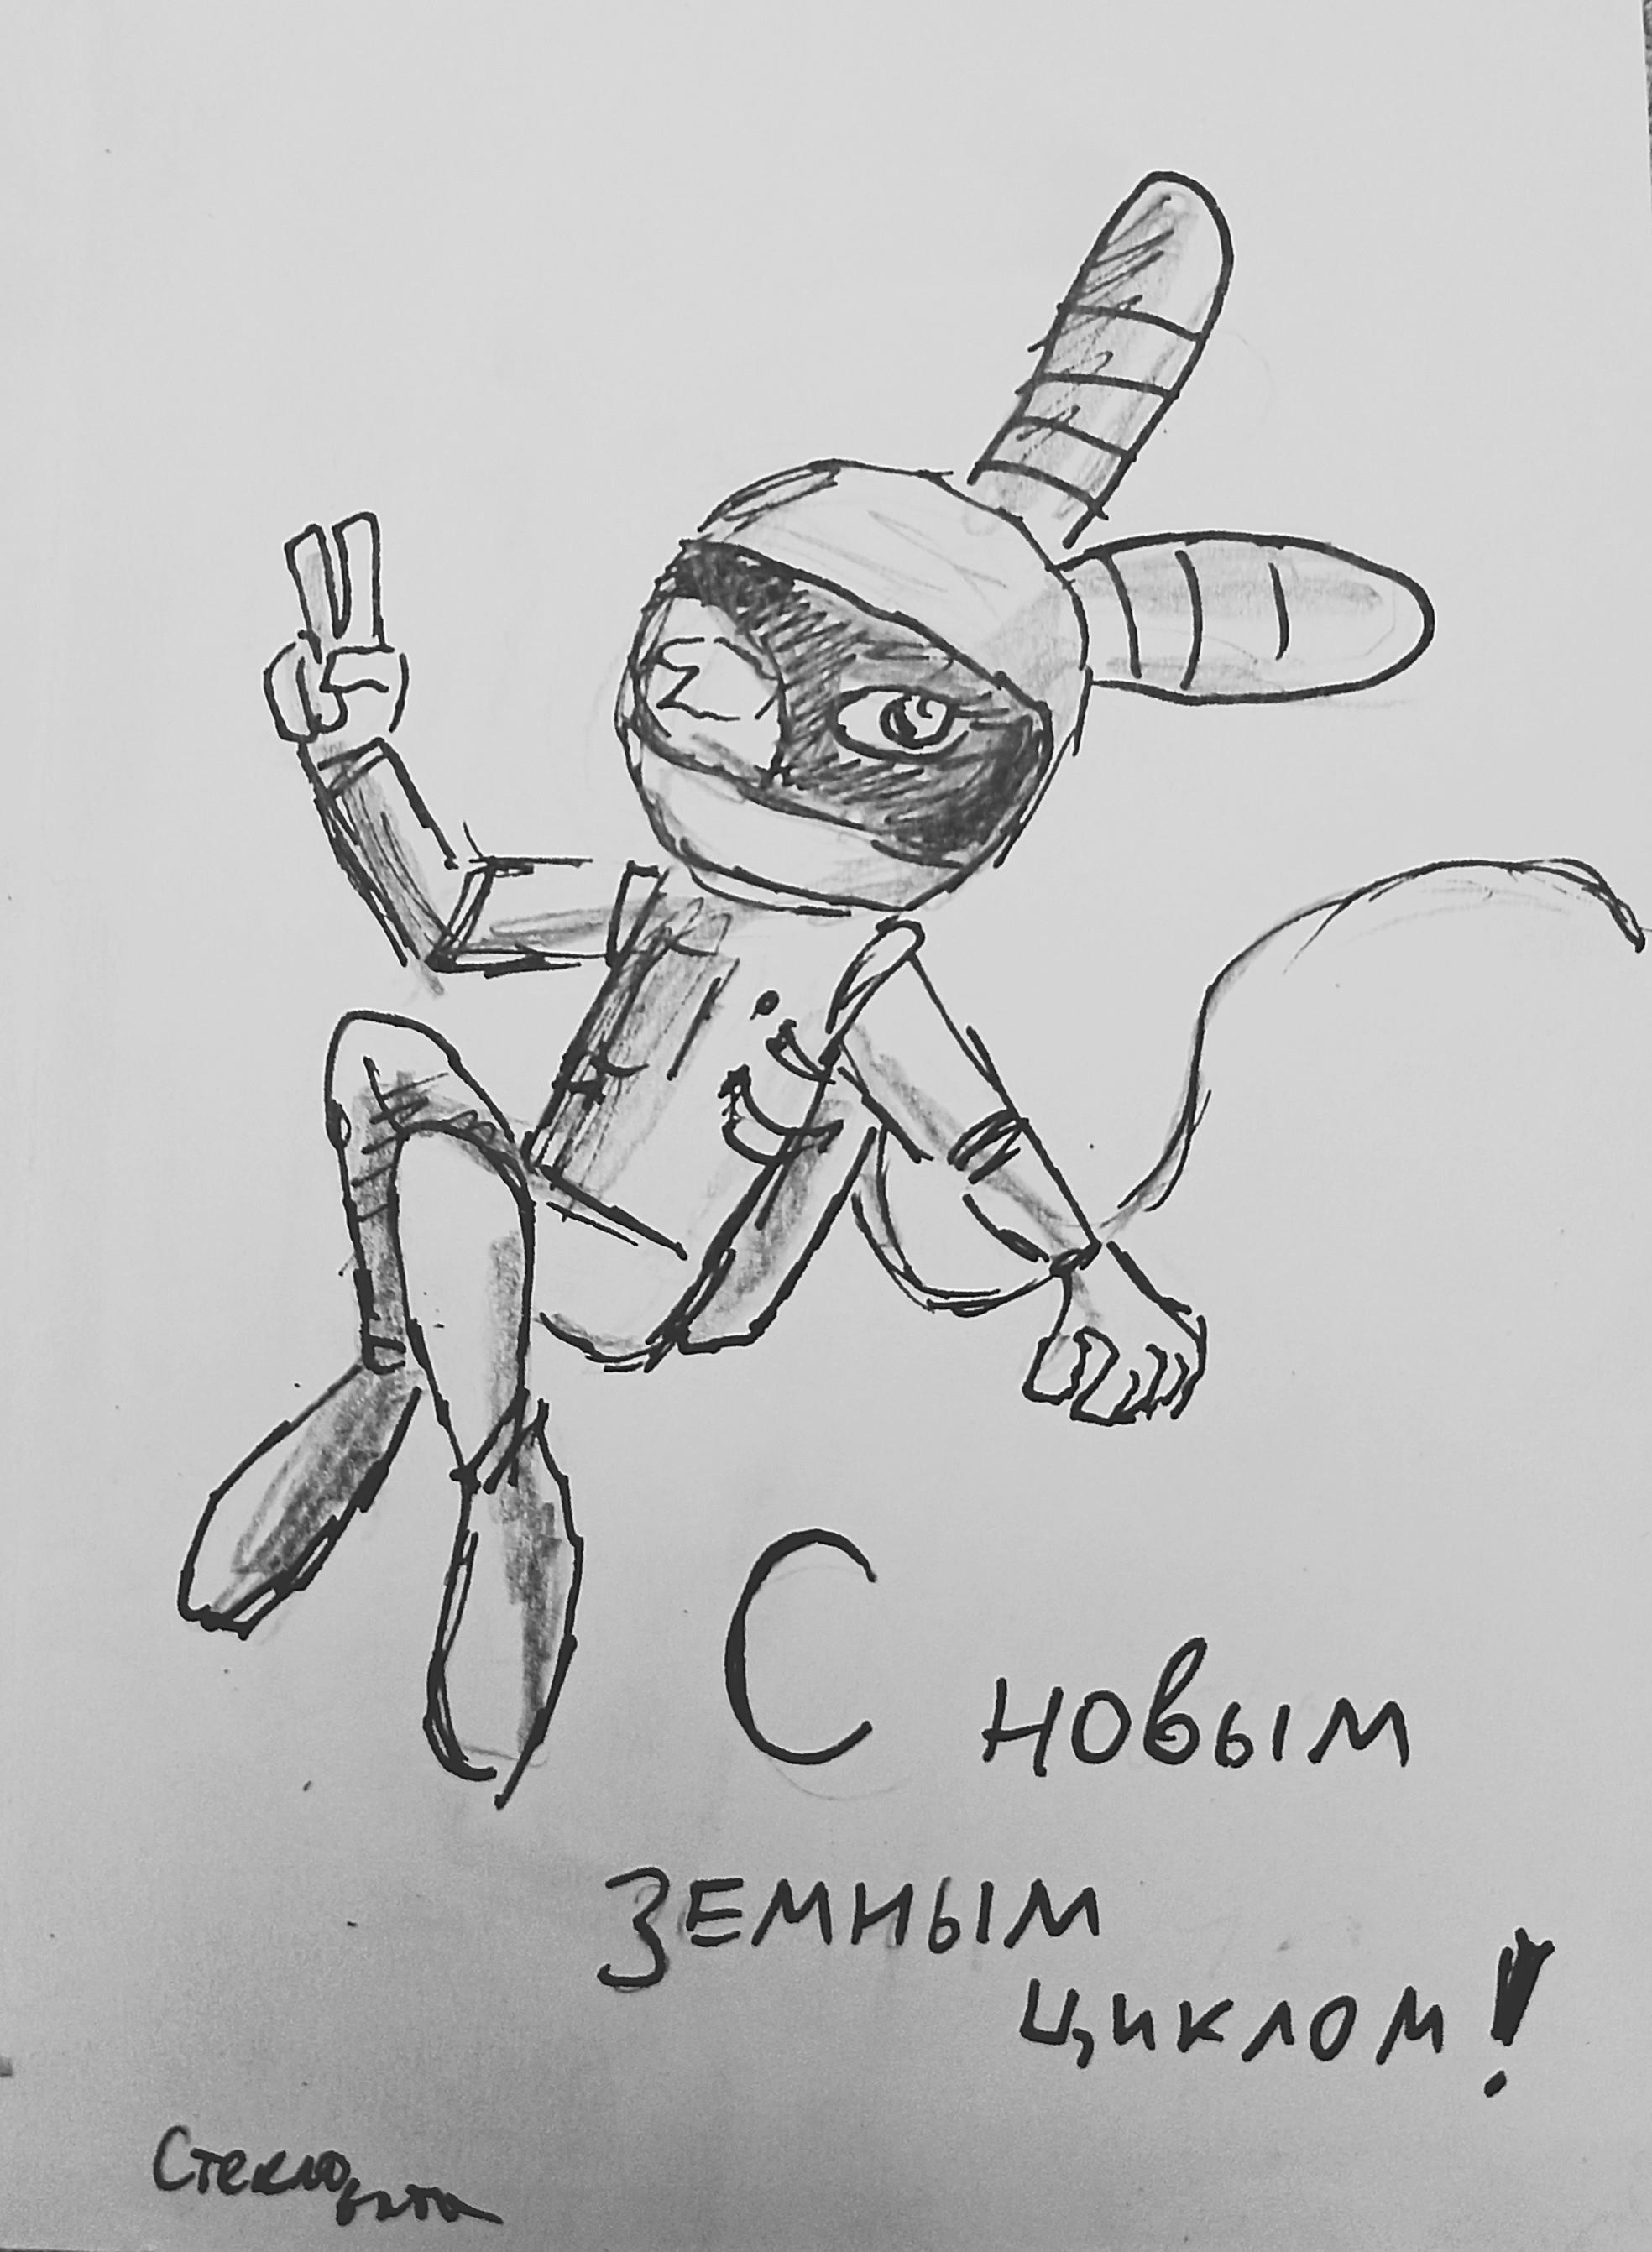 С новым
земным
циклом!
Стекловата